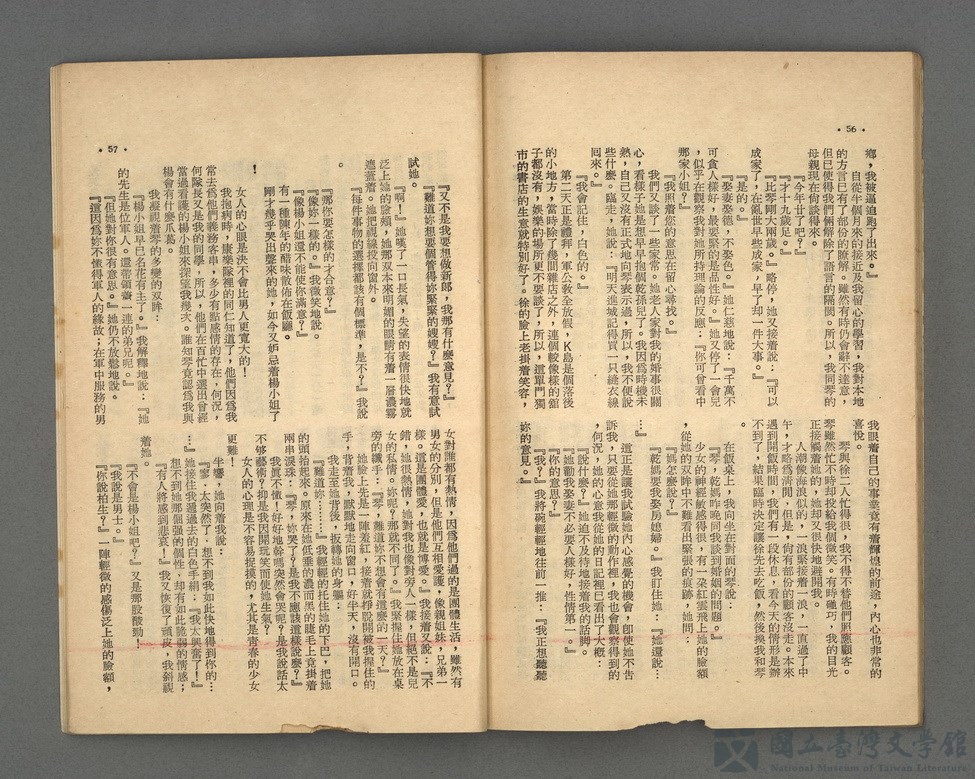 • 56 •
鄉，我被逼迫跑了出來。』
自從年個月來的接近及我留心的學習，我對本地
的方言已有了部份的瞭解。雖然有時仍會辭不達意，
但已使得我們倆解除了語言的隔閡。所以，我同琴的
母親現在尚談得來。
『今年廿了吧？』
『才十九歲足。』
『比琴阿大兩歲。』略停，她又接着說：『可以
成家了，在亂世早些成家，早了却一件大事。』
『是的。』
『娶妻娶德，不娶色。』她仁慈地說：『千萬不
可貪人樣好，最要緊的是品性好。』她又停了一會兒
，似乎在觀察我對她所持理論的反應：『你可曾看中
那家小姐？』
『我照着您的意思在留心尋找。』
我們又談了一些家常。她老人家對我的婚事很關
心，看樣子她是想早早抱個乾孫兒了。我因爲時機未
熟，自己又沒有正式地向琴表示過，所以，我不便說
些什麼。臨走，她說：『明天進城記得買一只縫衣線
囘來。』
『我會記住，白色的。』
第二天正是禮拜，軍公敎全放假，K島是個落後
的小地方，當時除了幾間雜貨店之外，連個較像樣的舘
子都沒有，娛樂的場所更不要談了，所以，這單門獨
市的書店的生意就特別好了。徐的臉上老掛着笑容，
我眼着自己的事業竟有着輝煌的前途，內心也非常的
喜悅。
琴與徐二人忙得很，我不得不替他們照應顧客。
琴雖然忙不時却投給我個微笑。有時碰巧，我的目光
正接觸着她的，她却又很快地避開我。
人潮像海浪似的，一浪緊接着一浪，一直過了中
午，才略爲清閒，但是，尙有部份的顧客沒走。本來
遇到開飯時間，我們有一段休息，看今天的情形是辦
不到了，結果臨時決定讓徐先去吃飯，然後換我和琴
。
在飯桌上，我向坐在對面的琴說：
『琴，乾媽昨晚同我談到婚姻的問題。』
少女的神經敏感得很，有一朵紅雲飛上她的臉額
，從她的双眸中不難看出緊張的痕跡。她問：
『媽怎麼說？』
『乾媽要我娶房媳婦。』我盯住她：『她還說…
…』
這正是讓我試驗她內心感覺的機會，卽使她不吿
訴我，只要從她那輕微的動作裡，我也會觀察得到的
，何況，她的心意我從她的日記裡已看出了大槪：
『說什麼？』她迫不及待地接着我的話
『她勸我娶妻不必要人樣好，性情第一。』
『你的意思？』
『我？』我將碗輕輕地往前一推：『我正想聽聽
妳的意見。』
• 57 •
『又不是我要想做新郎，我那有什麼意見？』
『難道妳想要個管得妳緊緊的嫂嫂？』我有意試
試她。
『啊！』她嘆了一口長氣，失望的表情很快地就
泛上她的臉頰，她那双本來明媚的眼睛有着一層濃霧
遮蓋着。她把視線投向窗外。
『每件事物的選擇都該有個標準，是不？』我說
。
『那你要怎樣的才合意？』
『像妳一樣的。』我微笑地說。
『像楊小姐還不能使你滿意？』
有一種陳年的醋味散佈在飯廳。
剛才幾乎哭出聲來的她，如今又妒忌着楊小姐了
！
女人的心眼是決不會比男人更寬大的！
我抱病時，康樂隊裡的同仁知道了，他們因爲我
常去爲他們義務客串，多少有點感情的存在，何況，
何隊長又是我的同學，所以，他們在百忙中選出曾經
當過看護的楊小姐來探望我幾次。誰知琴竟認爲我與
楊會有什麼瓜葛。
我凝視着琴的多變的双眸：
『楊小姐早已名花有主了。』我解釋地說：『她
的先生是位軍人。還帶領着一連的弟兄呢。』
『但她對你很有意思。』她仍不放鬆地說。
『這因爲妳不懂得軍人的緣故；在軍中服務的男
女對誰都有熱情，因爲他們過的是團體生活，雖然有
男女的分別，但是他們互相愛護，像親姐妹，兄弟一
樣。這是團體愛，也就是博愛。』我接着又說：『不
錯，她很熱情，她對我也像對旁人一樣，但絕不是兒
女的私情。妳呢？那就不同了。』我緊握住她放在桌
旁的纖手：『琴，難道妳不想會有這麼的一天？』
她臉上先是一陣羞紅，接着就掙脫開被我捏住的
手，背着我，默默地走向窗口，好半天，沒有開口。
我走至她背後，扳轉她的身軀：
『難道妳………』我輕輕的托住她的下巴，把她
的頭抬起來。原來在她低垂的濃而黑的睫毛上竟掛着
兩串淚珠：『琴，妳哭了？是我不應該這樣說麼？』
我眞不懂！好好地幹嗎突然會哭呢？是我說話太
不够藝術？抑是我因開玩笑而使她生氣？
女人的心理是不容易捉摸的，尤其是靑春的少女
更難！
半響，她向着我說：
『寥．太突然了．想不到我如此快地得到你的…
…』她接住我遞過去的白色手絹：『我太興奮了！』
想不到她那倔强的個性，却有如此脆弱的情感；
『有人將感到悲哀！』我又恢復了頑皮，我斜視
着她。
『不會是楊小姐吧？』又是那股酸勁！
『我說是男士。』
『你說柏生？』一陣輕微的感傷泛上她的臉額，
國立臺灣文學館
National Museum of Taiwan Literature